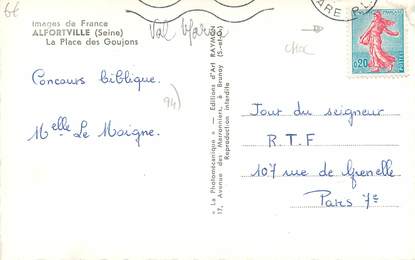 6€
Images de France
ALFORTVILLE (Seine)
La Place des Goujons
Val Marne
choc
ARE P.L
0,20
POSTES
Concours biblique.
94)
Melle Le Moigne.
« La Photomécanique » — Editions d'Art RAYMON
17, Avenue des Marronniers, à Brunoy (S.-et-O.)
Reproduction interdite
Jour du seigneur
R.T.F
107 rue de Grenelle
Paris 7e